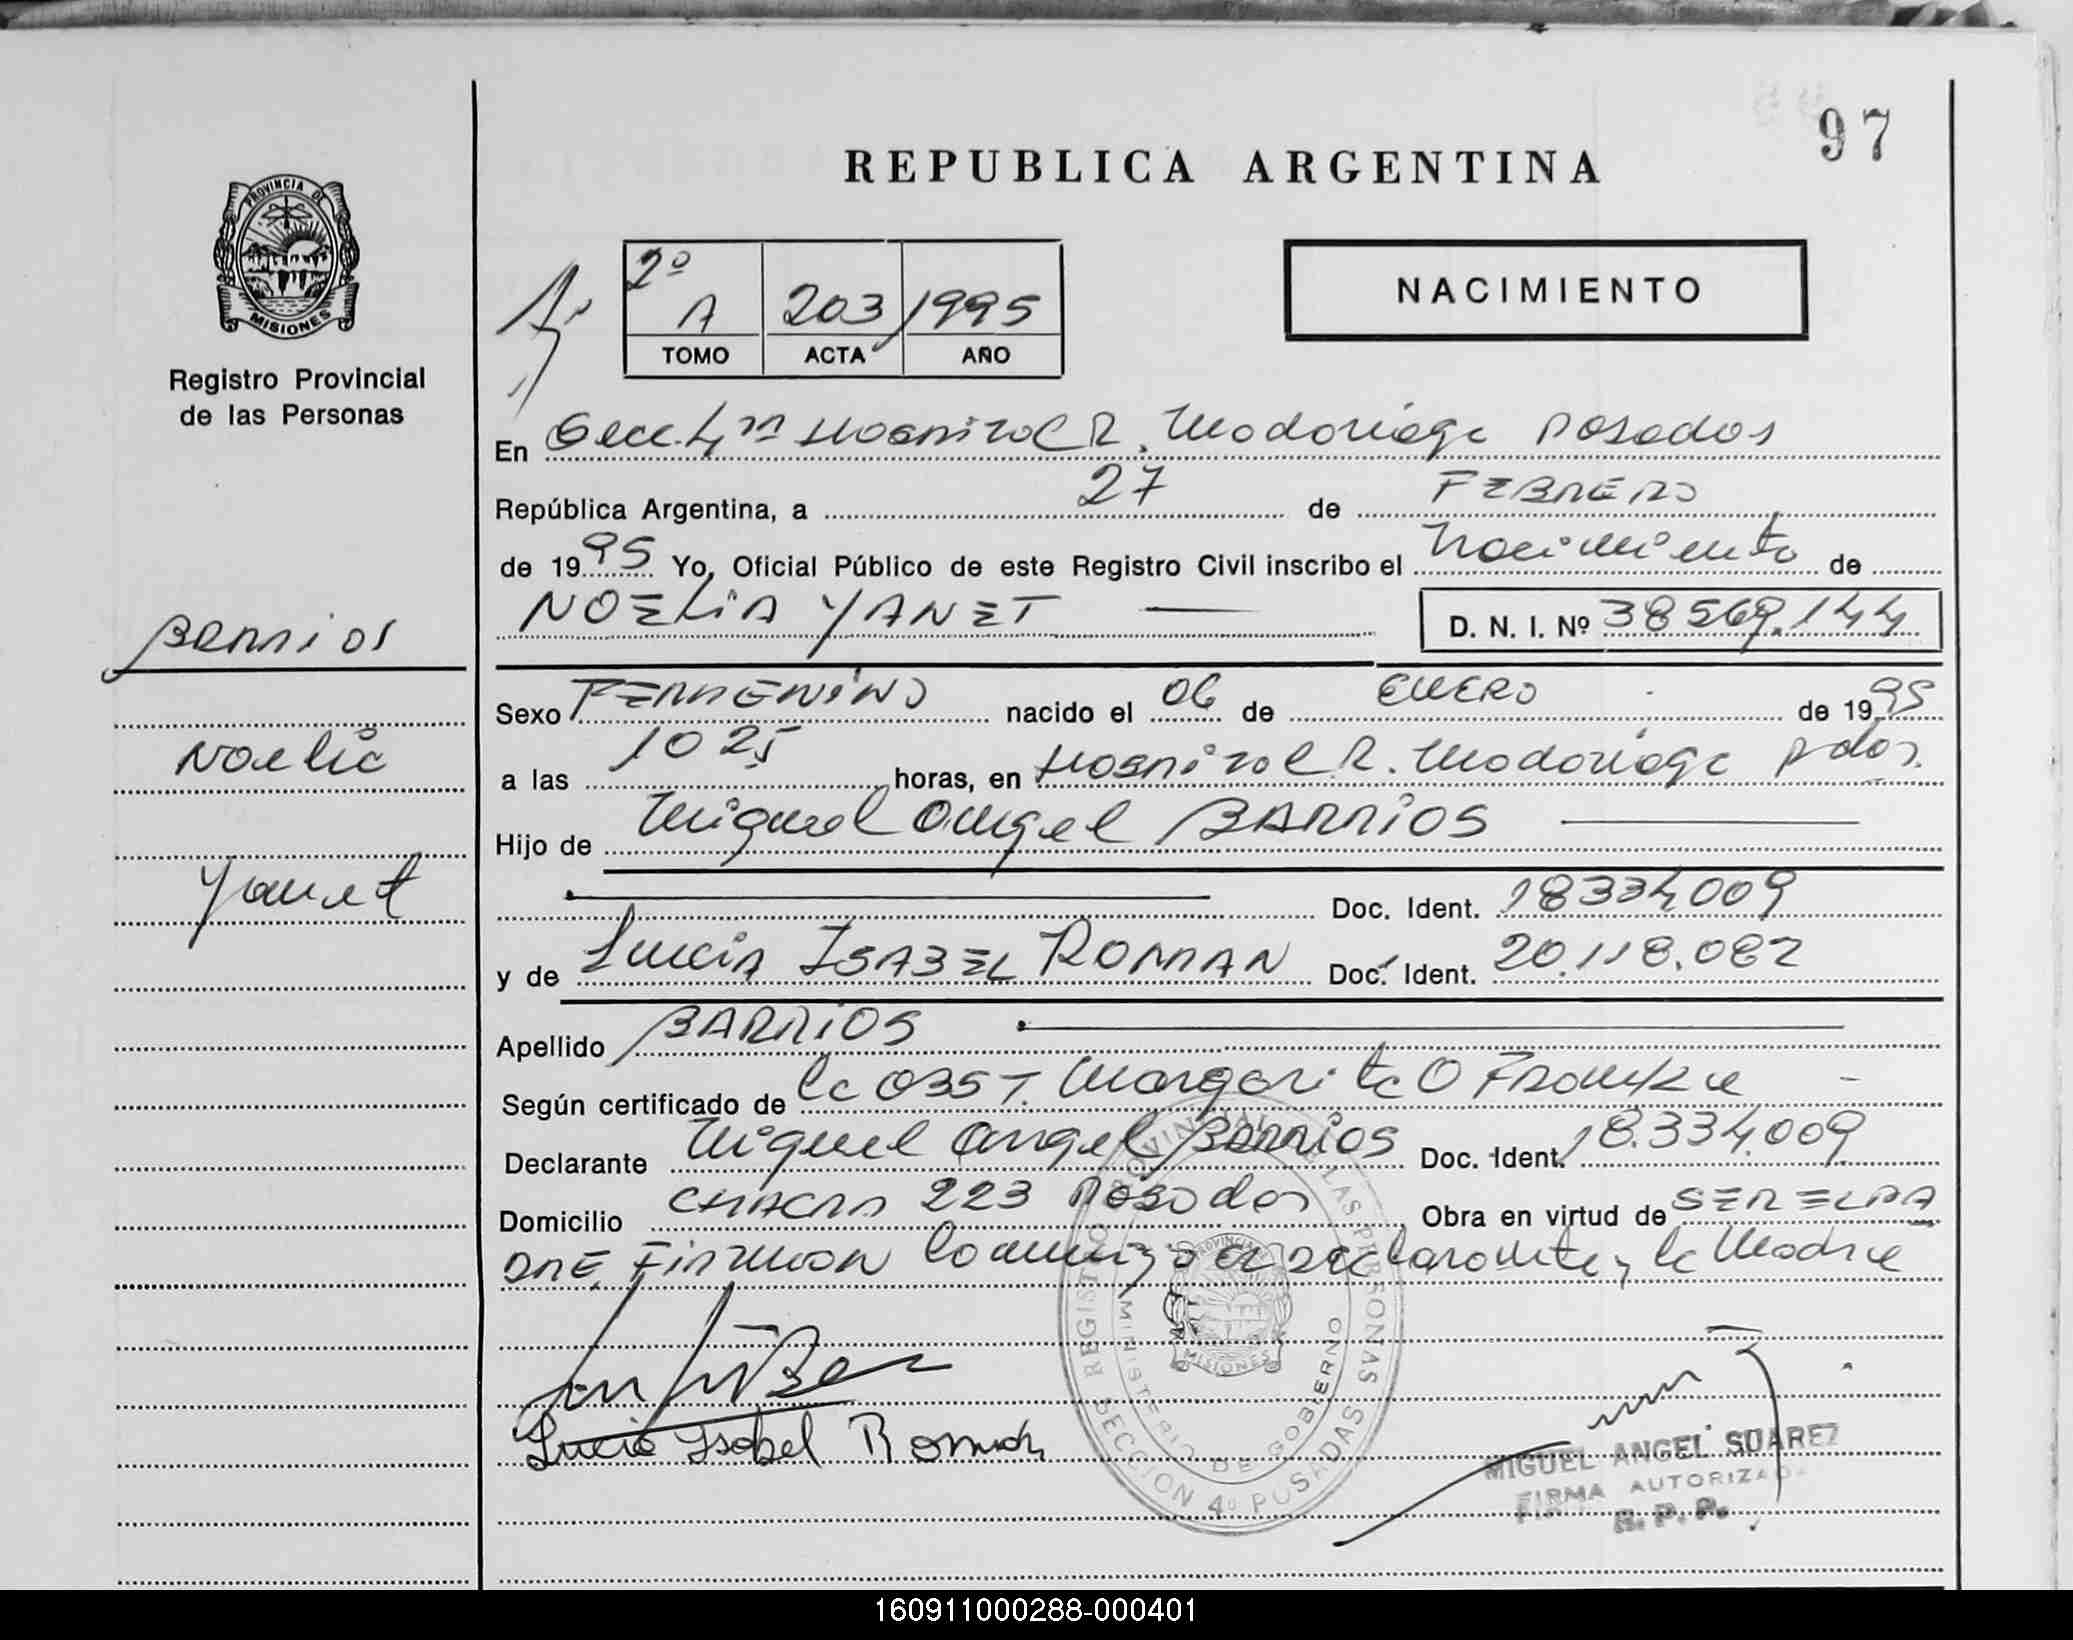 97
REPUBLICA ARGENTINA
PROVINCIA DE
MISIONES
Registro Provincial
de las Personas
2º
A 203 1995
TOMO ACTA AÑO
NACIMIENTO
En Secc. 4ta Hospital R. Madariaga Posadas
República Argentina, a 27 de FEBRERO
de 1995 Yo, Oficial Público de este Registro Civil inscribo el Nacimiento de
NOELIA YANET D. N. I. Nº 38569.144
Barrios
Noelia
Yanet
Sexo FEMENINO nacido el 06 de ENERO de 1995
a las 1025 horas, en Hospital R. Madariaga Pdas.
Hijo de Miguel Angel BARRIOS
Doc. Ident. 18334009
y de Lucia ISABEL ROMAN Doc. Ident. 20.118.082
Apellido BARRIOS
Según certificado de la OBST. Margarita O Franke
Declarante Miguel Angel Barrios Doc. Ident. 18.334.009
Domicilio CHACRA 223 Posadas Obra en virtud de SER EL PA
DRE. FIRMAN Conmigo el declarante y la Madre
Lucia Isabel Roman
REGISTRO PROVINCIAL DE LAS PERSONAS
MINISTERIO DE GOBIERNO
PROVINCIA DE
MISIONES
SECCION 4º POSADAS
MIGUEL ANGEL SUAREZ
FIRMA AUTORIZADA
R. P. P.
160911000288-000401